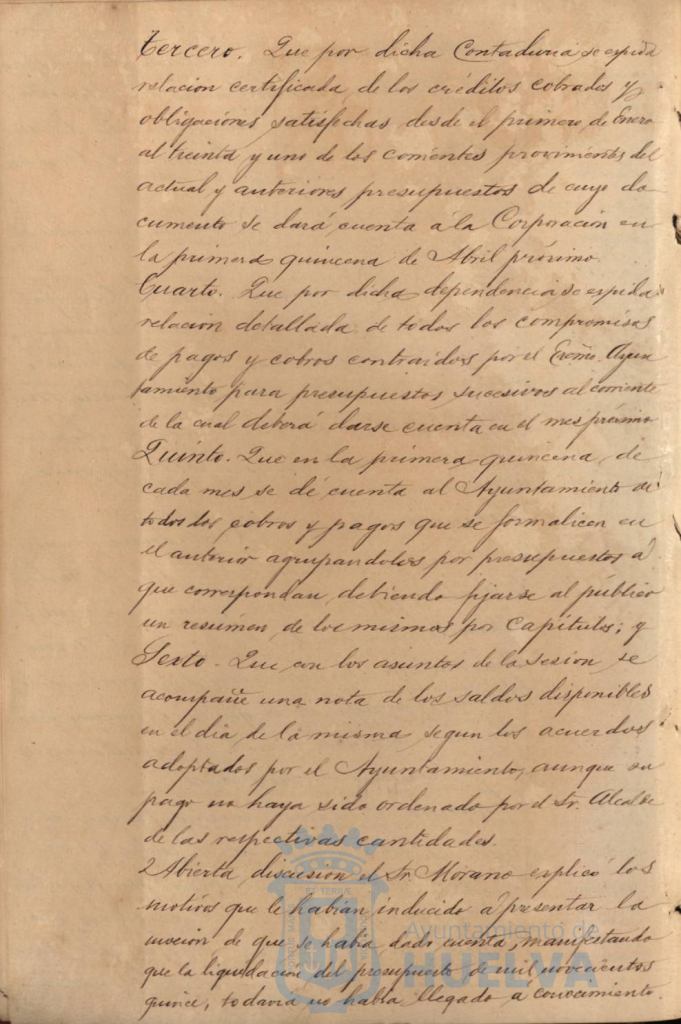 tercero. Que por dicha Contaduria se expida
relacion certificada de los créditos cobrados y
obligaciones satisfechas desde el primero de Enero
al treinta y uno de los corrientes provinientes del
actual y anteriores presupuestos de cuyo do
cumento se dará cuenta á la Corporacion en
la primera quincena de Abril próximo.
Cuarto. Que por dicha dependencia se expida
relacion detallada de todos los compromisos
de pagos y cobros contraidos por el Excmo. Ayun
tamiento para presupuestos sucesivos al corriente
de la cual deberá darse cuenta en el mes próximo
Quinto. Que en la primera quincena de
cada mes se dé cuenta al Ayuntamiento de
todos los cobros y pagos que se formalicen en
el anterior agrupandolos por presupuestos á
que correspondan, debiendo fijarse al público
un resúmen de los mismos por Capítulos; y
Sexto. Que con los asuntos de la sesion, se
acompañe una nota de los saldos disponibles
en el dia de la misma, segun los acuerdos
adoptados por el Ayuntamiento, aunque su
pago no haya sido ordenado por el Sr. Alcalde
de las respectivas cantidades.
Abierta discusion el Sr. Morano explicó los
motivos que le habian inducido á presentar la
mocion de que se habia dado cuenta, manifestando
que la liquidacion del presupuesto de mil novecientos
quince, todavia no habia llegado a conocimiento
Ayuntamiento de
HUELVA